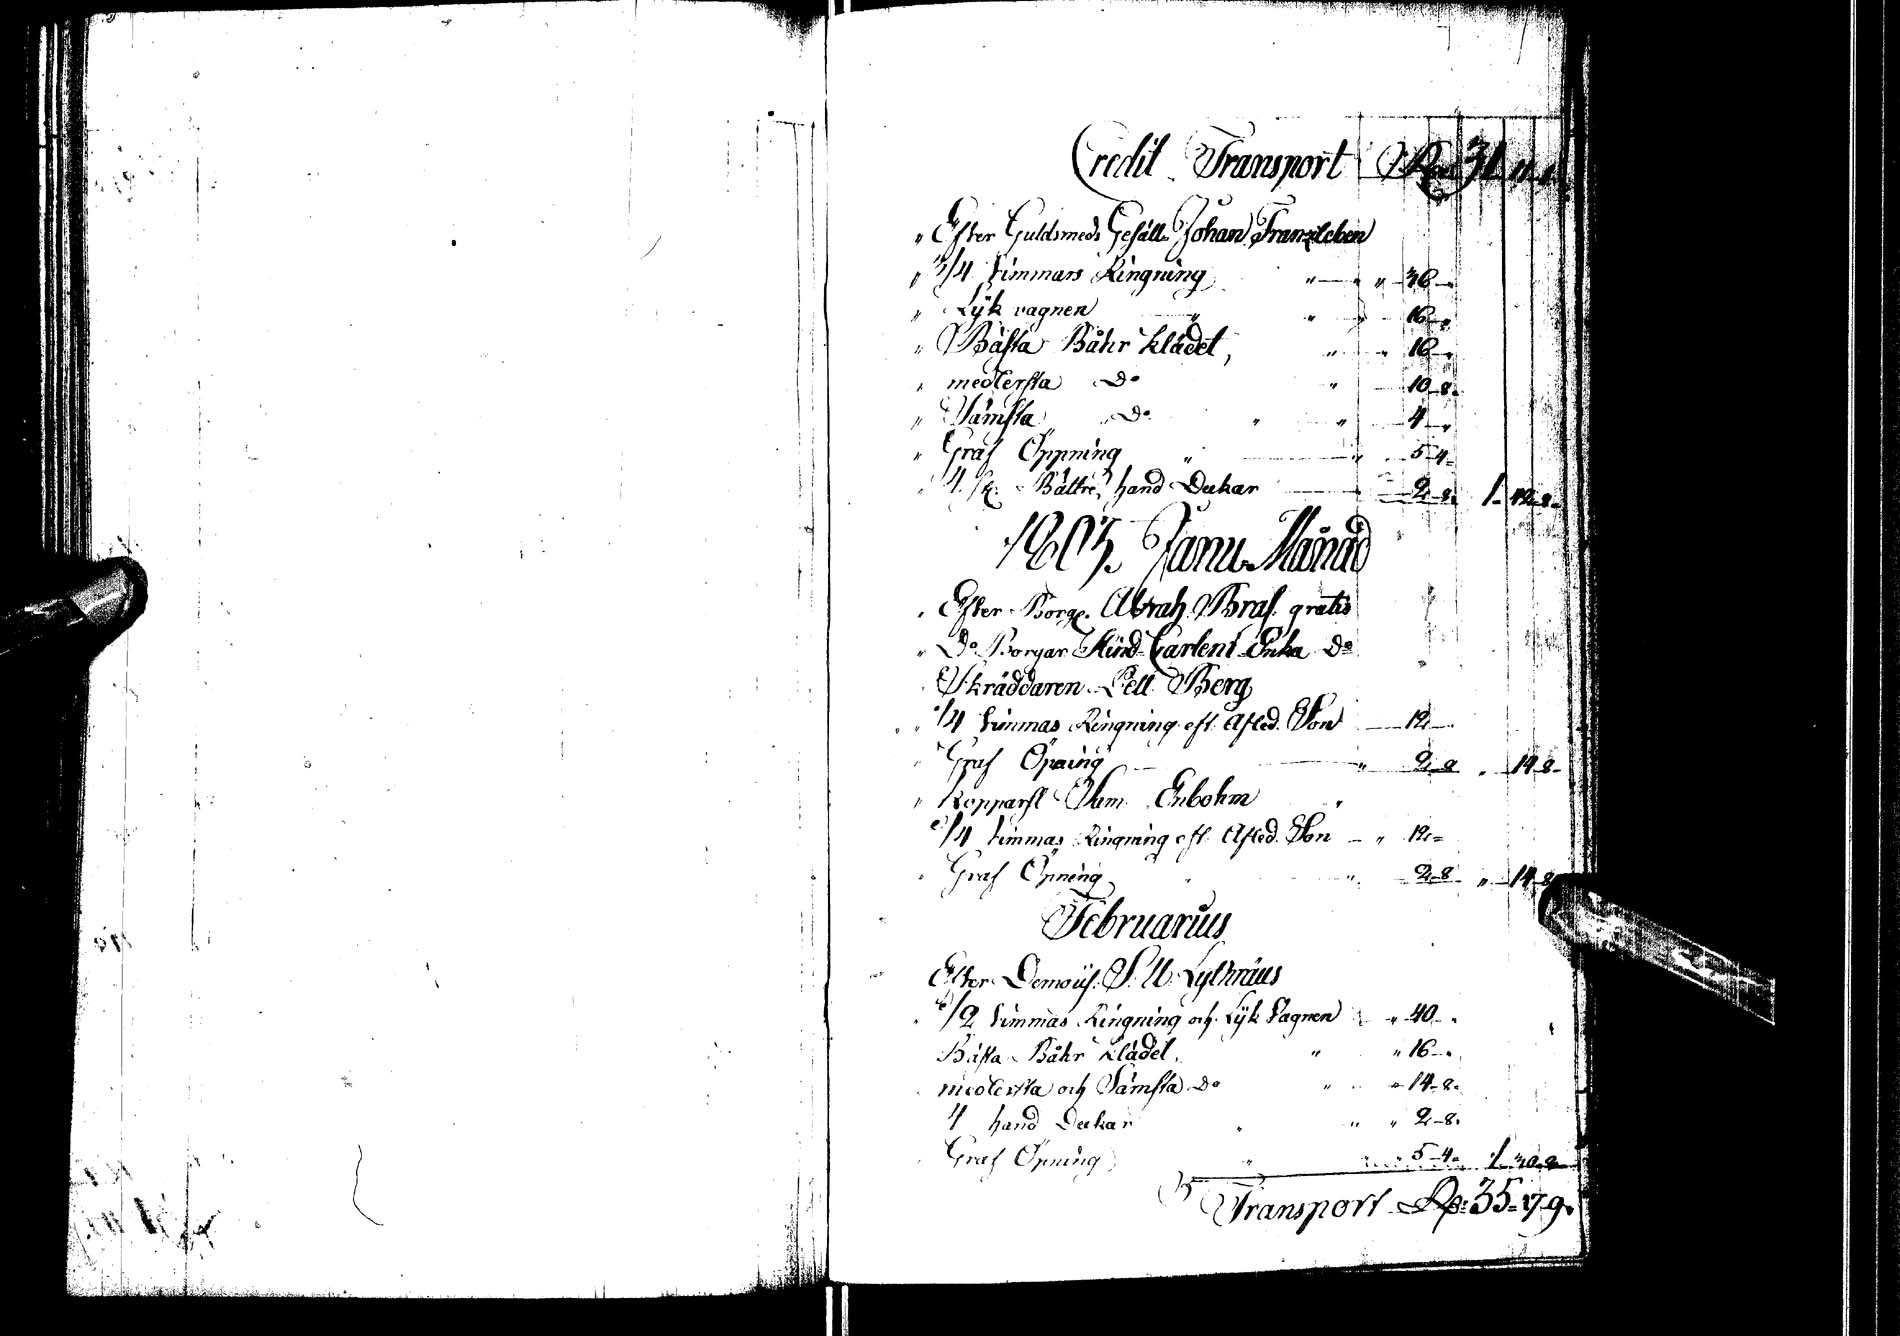 Credit Transport Rd 31. 11. 1.
" Efter Guldsmeds Gesäll. Johan Franzleben
" 3/4 timmars Ringning " — " " 36 — "
" Lÿk vagnen " " " 16 — "
" Bästa Båhr klädet, " " 16 — "
" medlersta Do " 10-8.
" Sämsta Do " " 4 — "
" Graf Öppning " " 5-4=
" 4. st. Bättre hand Deckar — 2-8. 1-42-8-
1803. Janu. Månad
Efter Borg. Abrah. Braf. gratis
" Do Borgar Carlent Enka Do
Skräddaren Pett Berg
1/4 timmas Ringning eft. Afled. Son — 12 —
Graf Öpning — " 2-8 " 14-8-
" Kopparsl Sam. Enbohm "
1/4 timmas Ringning eft. Afled. Son — " 12=
Graf Öpning " 2-8 " 14-8
Februarius
Efter Demois. S. U. Lythräus
1/2 timmas Ringning och Lÿk Vagnen " 40 "
Bästa Båhr klädet. " " 16 — "
medlersta och Sämsta Do " " 14-8.
4 hand Deckar " " 2-8.
Graf Öpning " 5-4= 1-30-8
Transport Rd: 35-17-9.